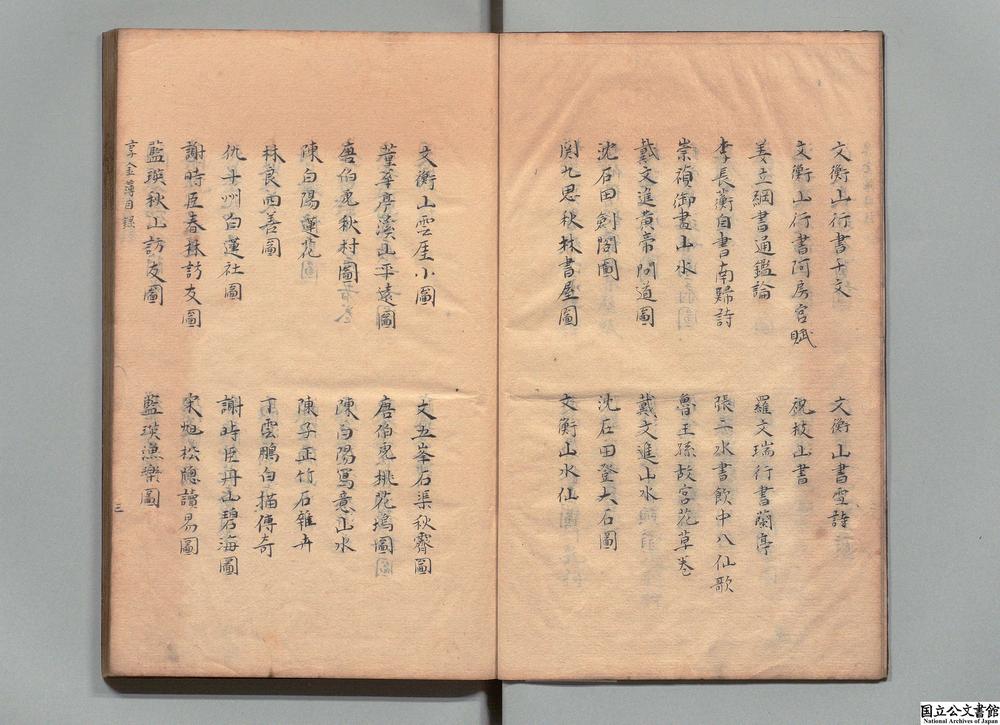 文衡山行書千文　文衡山書雪詩
文衡山行書阿房宮賦　祝枝山書
姜立綱書通鑑論　羅文瑞行書蘭亭
李長蘅自書南歸詩　張二水書飲中八仙歌
崇禎御畫山水　魯王孫故宮花草卷
戴文進黄帝問道圖　戴文進山水
沈石田劍閣圖　沈石田登大石圖
関九思秋林書屋圖　文衡山水仙
文衡山雲崖小圖　文五峯石渠秋霽圖
董華亭溪山平遠圖　唐伯虎桃花塢圖
唐伯虎秋村圖　陳白陽寫意山水
陳白陽蓮花　陳子正竹石雜卉
林良西善圖　丁雲鵬白描傳奇
仇十洲白蓮社圖　謝時臣丹山碧海圖
謝時臣春林訪友圖　宋旭松隱讀易圖
藍瑛秋山訪友圖　藍瑛漁樂圖
享金簿目錄　三
国立公文書館
National Archives of Japan